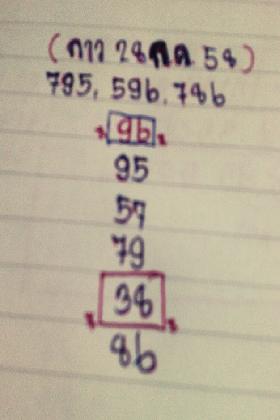 (ลาว 28 ก.ค. 58)
795, 596, 786
96
95
57
79
38
86